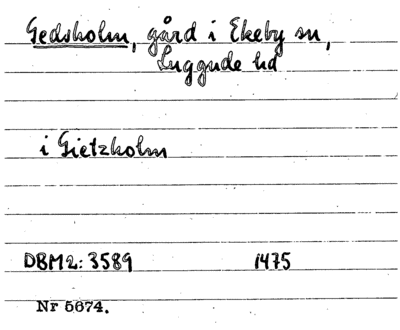 Gedsholm, gård i Ekeby sn,
Luggude hd
i Gietzholm
DBM2: 3589 1475
Nr 5674.